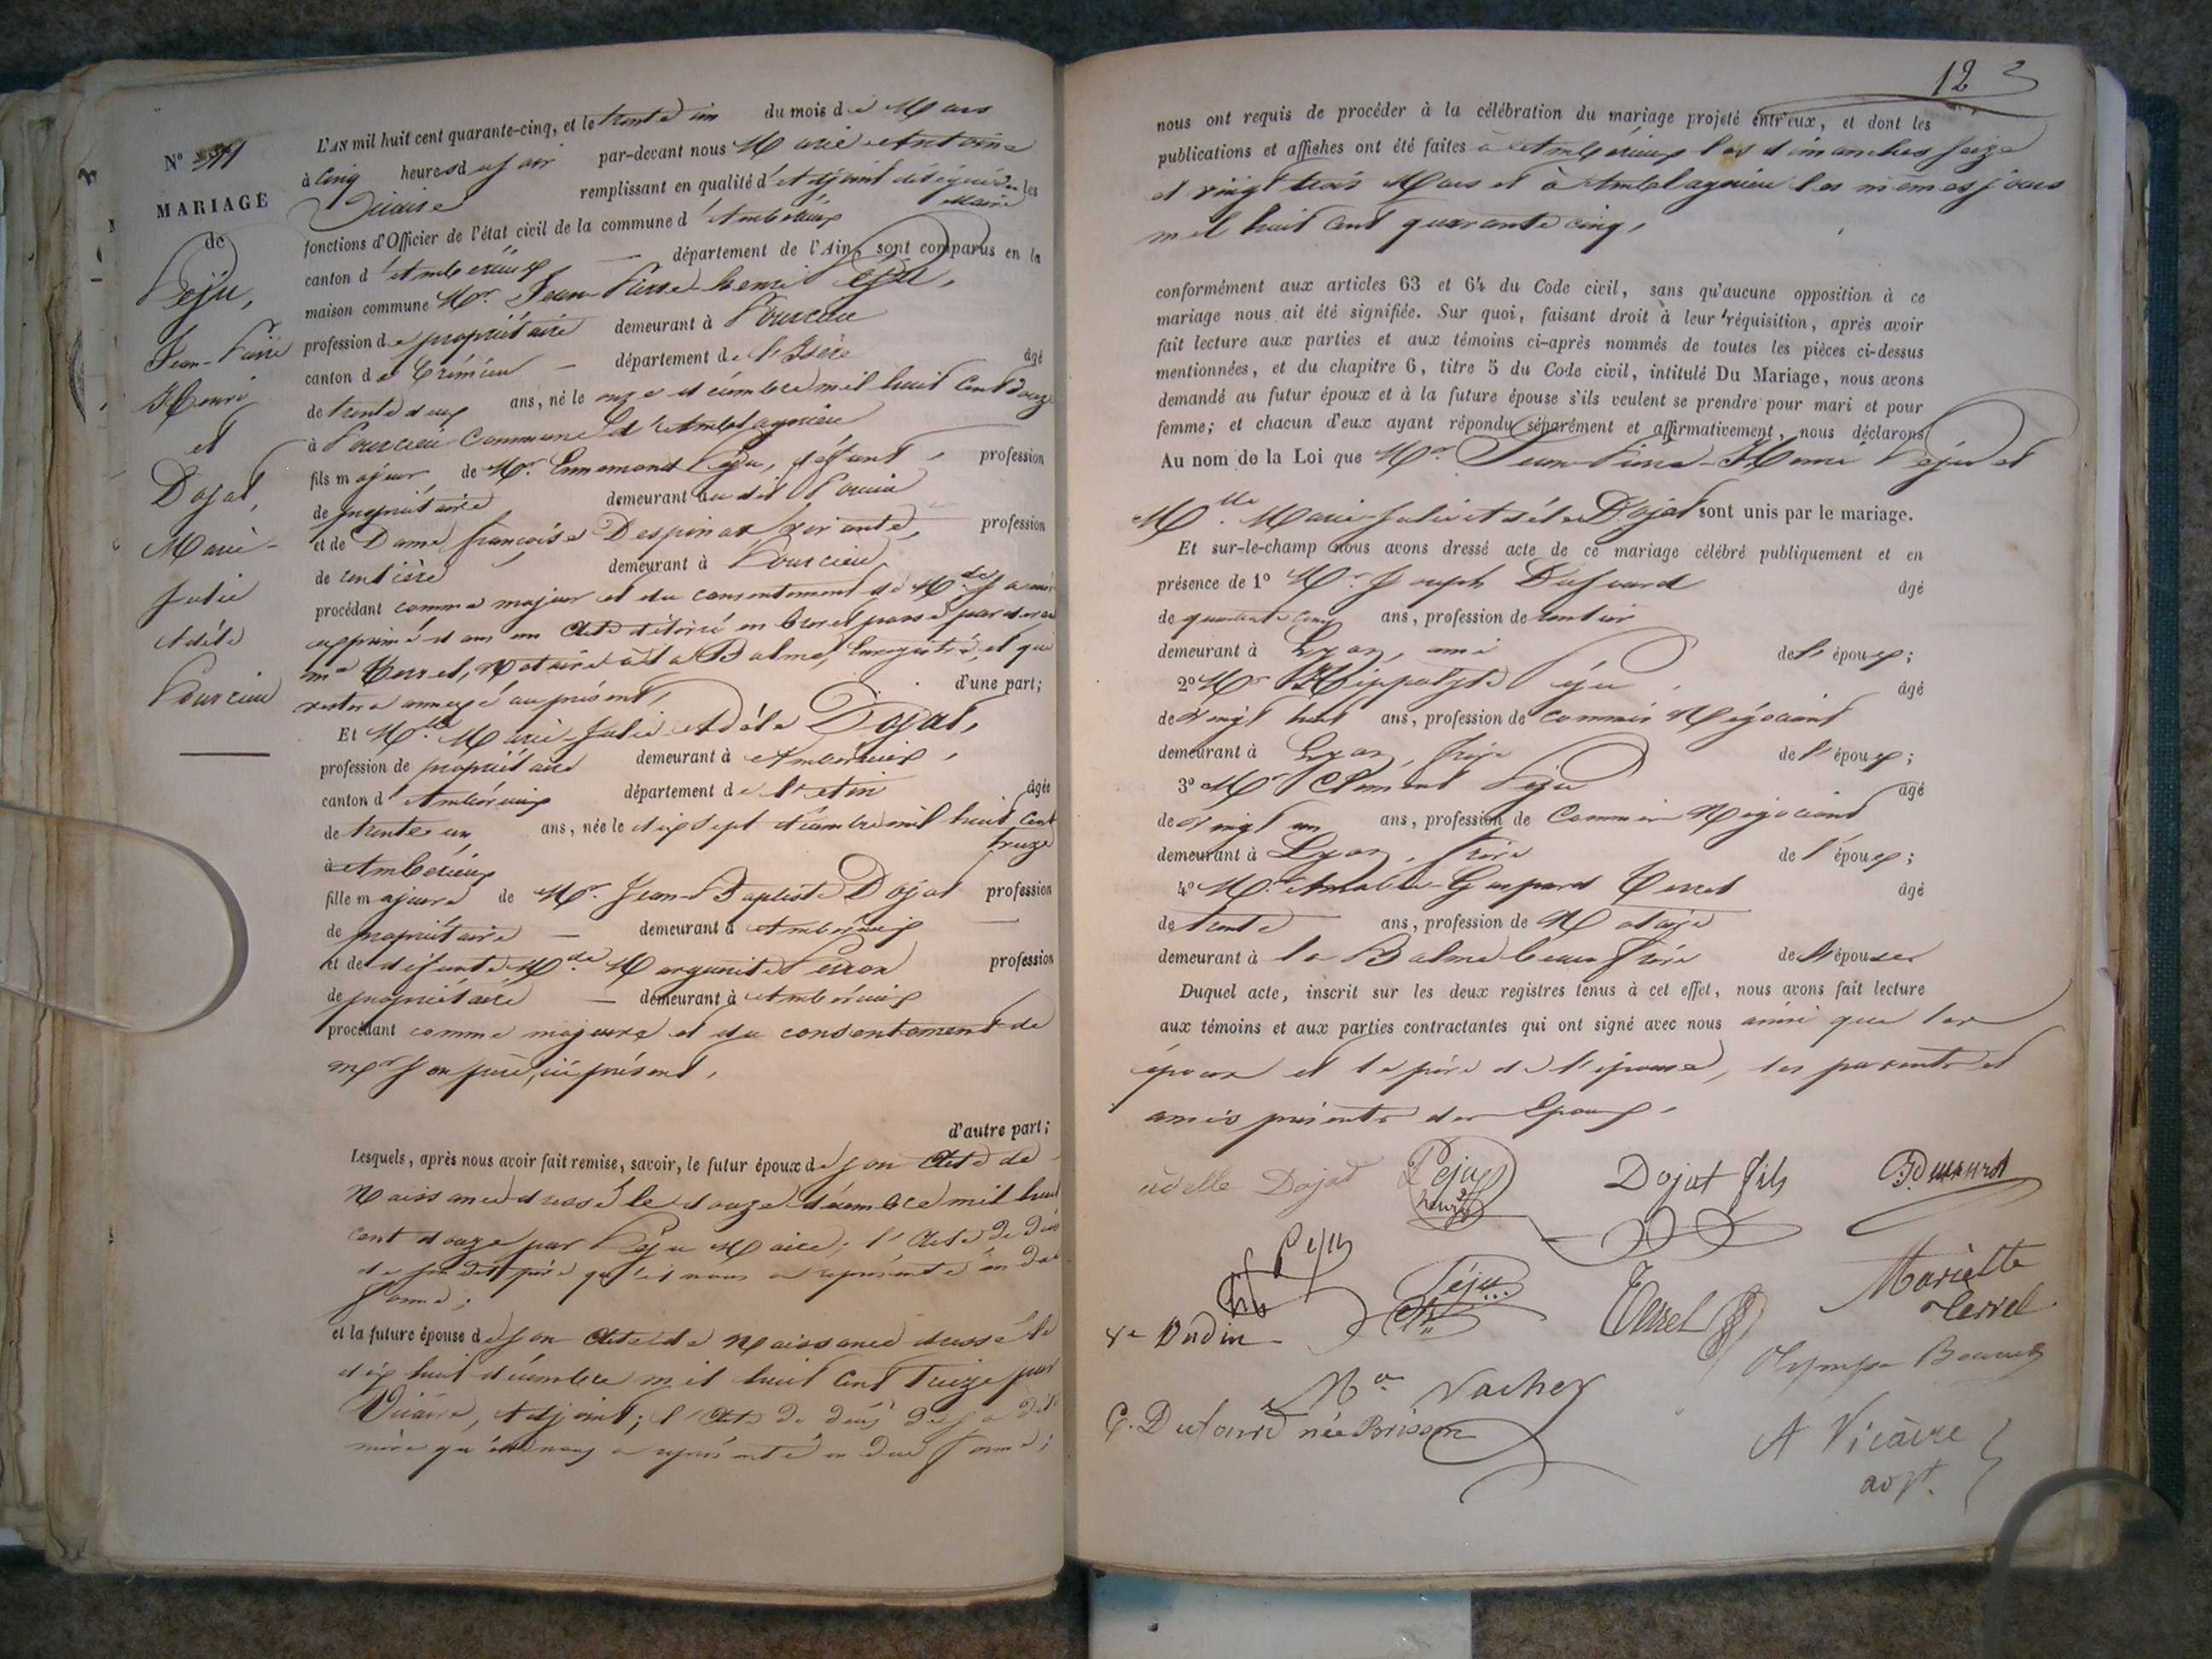 Nº 11
MARIAGE
de
Péju,
Jean-Pierre
Henri
et
Dojat,
Marie-
Julie
Adèle
Pourcieu
L'AN mil huit cent quarante-cinq, et le trente un du mois de Mars
à cinq heures du soir par-devant nous Marie Antoine
Vicaire remplissant en qualité d'Adjoint délégué du Maire les
fonctions d'Officier de l'état civil de la commune d'Ambérieux
canton d'Ambérieux — département de l'Ain, sont comparus en la
maison commune Mr. Jean-Pierre-henri Péju,
profession de propriétaire demeurant à Pourcieu
canton de Crémieu — département de l'Isère âgé
de trente deux ans, né le onze décembre mil huit cent douze
à Pourcieu commune d'Amblagnieu
fils majeur de Mr. Ennemond Péju, défunt, profession
de propriétaire demeurant au dit Pourcieu
et de Dame françoise Despinas, vivante, profession
de rentière demeurant à Pourcieu
procédant comme majeur et du consentement de Mde. sa mère
exprimé dans un Acte délivré en brevet passé par devant
me Terret, Notaire à la Balme, Enregistré, et qui
restera annexé au présent, d'une part;
Et Mlle. Marie-Julie-Adèle Dojat,
profession de propriétaire demeurant à Ambérieux,
canton d'Ambérieux département de l'Ain âgée
de trente un ans, née le dix sept décembre mil huit cent
treize
à Ambérieux
fille majeure de Mr. Jean-Baptiste Dojat profession
de propriétaire — demeurant à Ambérieux —
et de défunte Mde. Marguerite Perron profession
de propriétaire — demeurant à Ambérieux
procédant comme majeure et du consentement de
mr son père, ici présent,
d'autre part;
Lesquels, après nous avoir fait remise, savoir, le futur époux de son Acte de
Naissance dressé le douze décembre mil huit
cent douze par Péju Maire; l'Acte de décès
de son dit père qu'il nous a représenté en due
forme;
et la future épouse de son Acte de Naissance dressé le
dix huit décembre mil huit cent treize par
Vicaire, Adjoint; l'Acte de décès de sa dite
mère qu'elle nous a représenté en due forme;
12
nous ont requis de procéder à la célébration du mariage projeté entr'eux, et dont les
publications et affiches ont été faites à Ambérieux les dimanches seize
et vingt trois Mars et à Amblagnieu les mêmes jours
mil huit cent quarante cinq,
conformément aux articles 63 et 64 du Code civil, sans qu'aucune opposition à ce
mariage nous ait été signifiée. Sur quoi, faisant droit à leur réquisition, après avoir
fait lecture aux parties et aux témoins ci-après nommés de toutes les pièces ci-dessus
mentionnées, et du chapitre 6, titre 5 du Code civil, intitulé Du Mariage, nous avons
demandé au futur époux et à la future épouse s'ils veulent se prendre pour mari et pour
femme; et chacun d'eux ayant répondu séparément et affirmativement, nous déclarons
Au nom de la Loi que Mr. Jean-Pierre-Henri Péju et
Mlle. Marie-Julie Adèle Dojat sont unis par le mariage.
Et sur-le-champ nous avons dressé acte de ce mariage célébré publiquement et en
présence de 1º Mr. Joseph Dufourd âgé
de quarante cinq ans, profession de rentier
demeurant à Lyon, ami de l'époux;
2º Mr Hippolyte Péju, âgé
de vingt huit ans, profession de commis Négociant
demeurant à Lyon, frère de l'époux;
3º Mr Clément Péju âgé
de vingt un ans, profession de Commis Négociant
demeurant à Lyon, frère de l'époux;
4º Mr. Amable-Gaspard Terret âgé
de trente ans, profession de Notaire
demeurant à la Balme beau frère de l'épouse
Duquel acte, inscrit sur les deux registres tenus à cet effet, nous avons fait lecture
aux témoins et aux parties contractantes qui ont signé avec nous ainsi que les
époux et le père de l'épouse, les parents et
amis présents des Epoux.
adelle Dojat Péju henry Dojat fils
Péju Péju Terret Mariette
Terret
Ve Dudin
Olympe
Vacher
C. Dufourd née Brisson
A Vicaire
adjt.